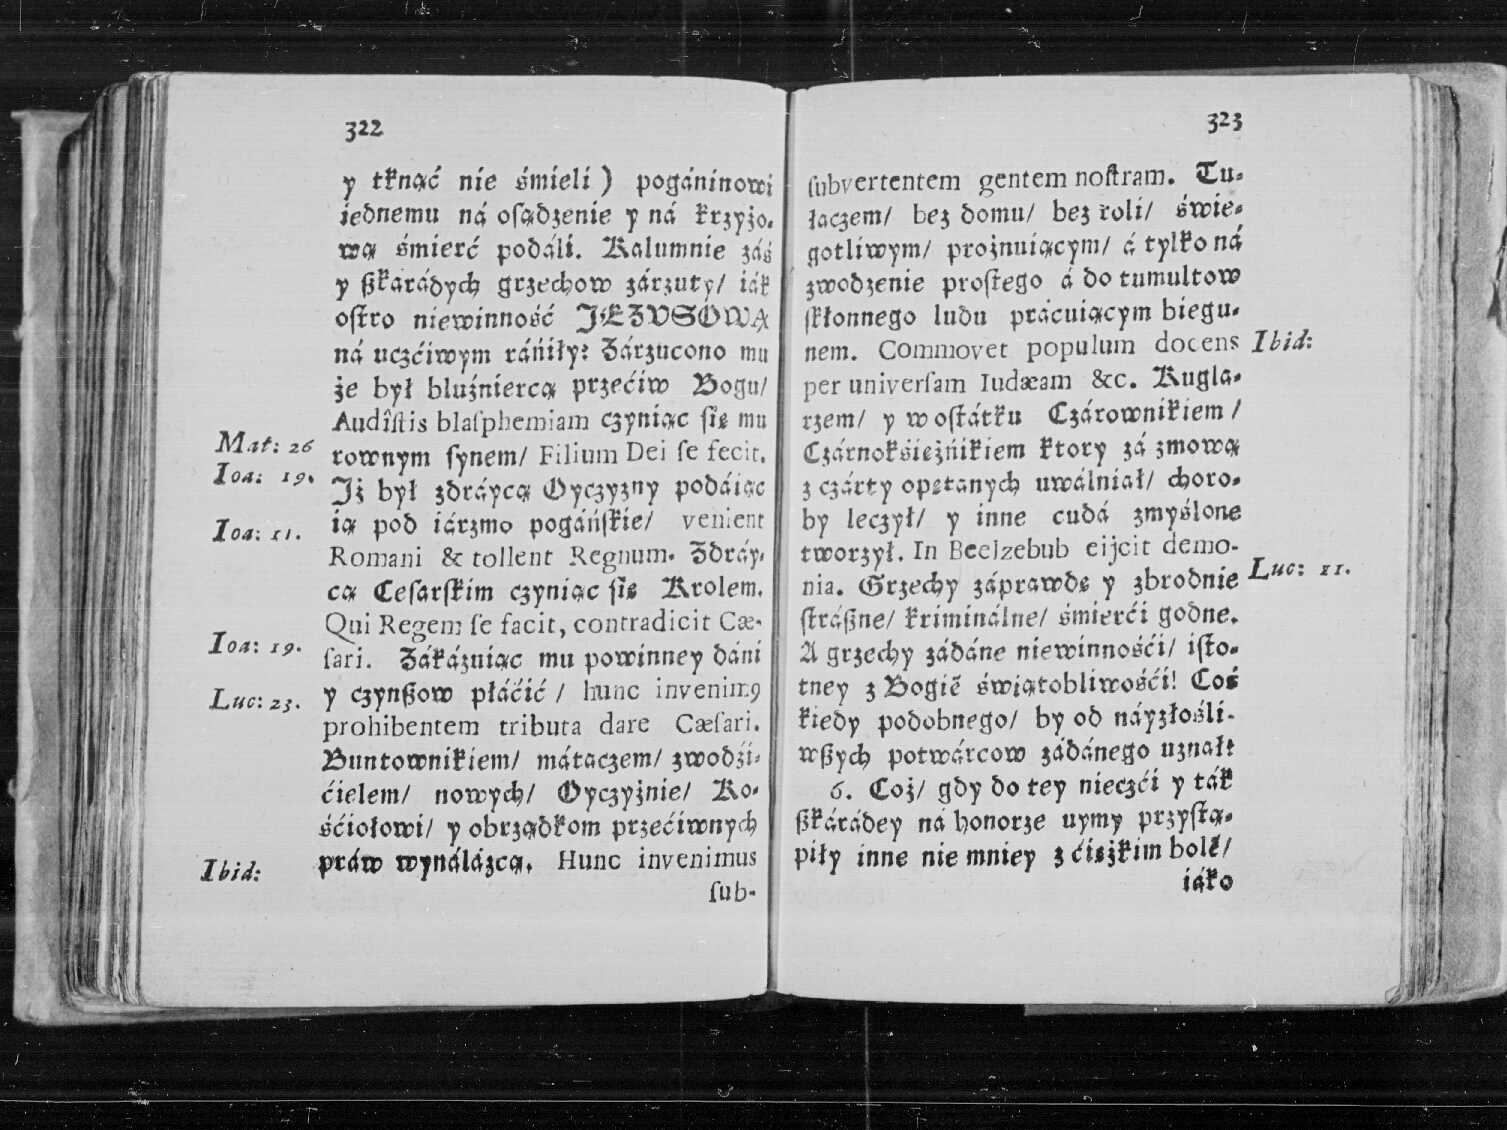 322
y tknąć nie śmieli ) pogáninowi
iednemu ná osądzenie y ná krzyżo-
wą śmierć podáli. Kalumnie záś
y ßkarádych grzechow zárzuty/ iák
ostro niewinność JEZUSOWĄ
ná uczćiwym ráńiły: Zárzucono mu
że był bluźniercą przećiw Bogu/
Audîstis blaſphemiam czyniąc się mu
Mat: 26
rownym synem/ Filium Dei ſe fecit.
Ioa: 19.
Jż był zdráycą Oyczyzny podáiąc
ią pod iárzmo pogáńskie/ venient
Ioa: 11.
Romani & tollent Regnum. Zdráy-
cą Cesarskim czyniąc się Krolem.
Qui Regem ſe facit, contradicit Cæ-
Ioa: 19.
ſari. Zákázuiąc mu powinney dáni
y czynßow płáćić / hunc invenimꝰ
Luc: 23.
prohibentem tributa dare Cæſari.
Buntownikiem/ mátaczem/ zwodźi-
ćielem/ nowych/ Oyczyźnie/ Ko-
śćiołowi/ y obrządkom przećiwnych
práw wynálázcą. Hunc invenimus
Ibid:
ſub-
323
ſubvertentem gentem noſtram. Tu-
łaczem/ bez domu/ bez roli/ świe-
gotliwym/ prożnuiącym/ á tylko ná
zwodzenie prostego á do tumultow
skłonnego ludu prácuiącym biegu-
nem. Commovet populum docens
Ibid:
per univerſam Iudæam &c. Kugla-
rzem/ y w ostátku Czárownikiem /
Czárnokśiężńikiem ktory zá zmową
z czárty opętanych uwálniał/ choro-
by leczył/ y inne cudá zmyślone
tworzył. In Beelzebub eijcit demo-
nia. Grzechy záprawdę y zbrodnie
Luc: 11.
stráßne/ kriminálne/ śmierći godne.
A grzechy zádáne niewinnośći/ isto-
tney z Bogiẽ świątobliwośći! Coś
kiedy podobnego/ by od náyzłośli-
wßych potwárcow zádánego uznał:
6. Coż/ gdy do tey nieczći y ták
ßkárádey ná honorze uymy przystą-
piły inne nie mniey z ćiężkim bolẽ/
iáko